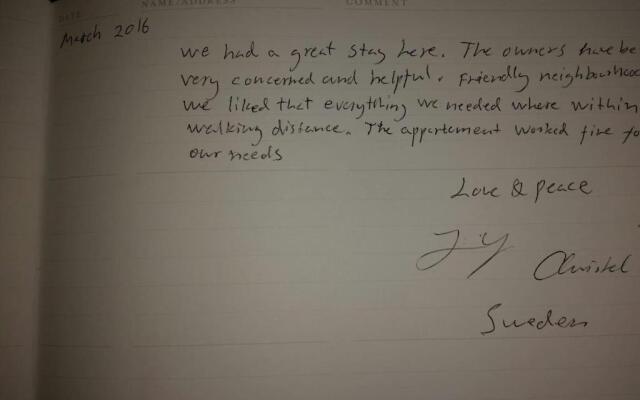 DATE NAME/ADDRESS COMMENT
March 2016
we had a great stay here. The owners have be
very concerned and helpful. Friendly neighbourhoo
we liked that everything we needed where within
walking distance. The appartement worked fine fo
our needs
Love & peace
Christel
Sweden